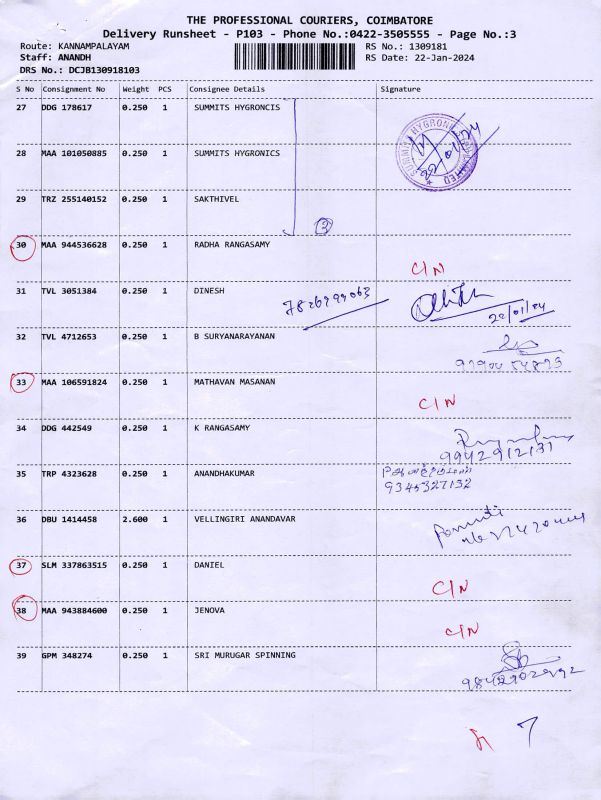 THE PROFESSIONAL COURIERS, COIMBATORE
Delivery Runsheet - P103 - Phone No.:0422-3505555 - Page No.:3
Route: KANNAMPALAYAM RS No.: 1309181
Staff: ANANDH RS Date: 22-Jan-2024
DRS No.: DCJB130918103
S No Consignment No Weight PCS Consignee Details Signature
27 DDG 178617 0.250 1 SUMMITS HYGRONCIS
28 MAA 101050885 0.250 1 SUMMITS HYGRONICS
22/01/24
29 TRZ 255140152 0.250 1 SAKTHIVEL
3
30 MAA 944536628 0.250 1 RADHA RANGASAMY
C/N
31 TVL 3051384 0.250 1 DINESH
22/01/24
32 TVL 4712653 0.250 1 B SURYANARAYANAN
33 MAA 106591824 0.250 1 MATHAVAN MASANAN
C/N
34 DDG 442549 0.250 1 K RANGASAMY
9942912131
35 TRP 4323628 0.250 1 ANANDHAKUMAR
9345327132
36 DBU 1414458 2.600 1 VELLINGIRI ANANDAVAR
37 SLM 337863515 0.250 1 DANIEL
C/N
38 MAA 943884600 0.250 1 JENOVA
C/N
39 GPM 348274 0.250 1 SRI MURUGAR SPINNING
7